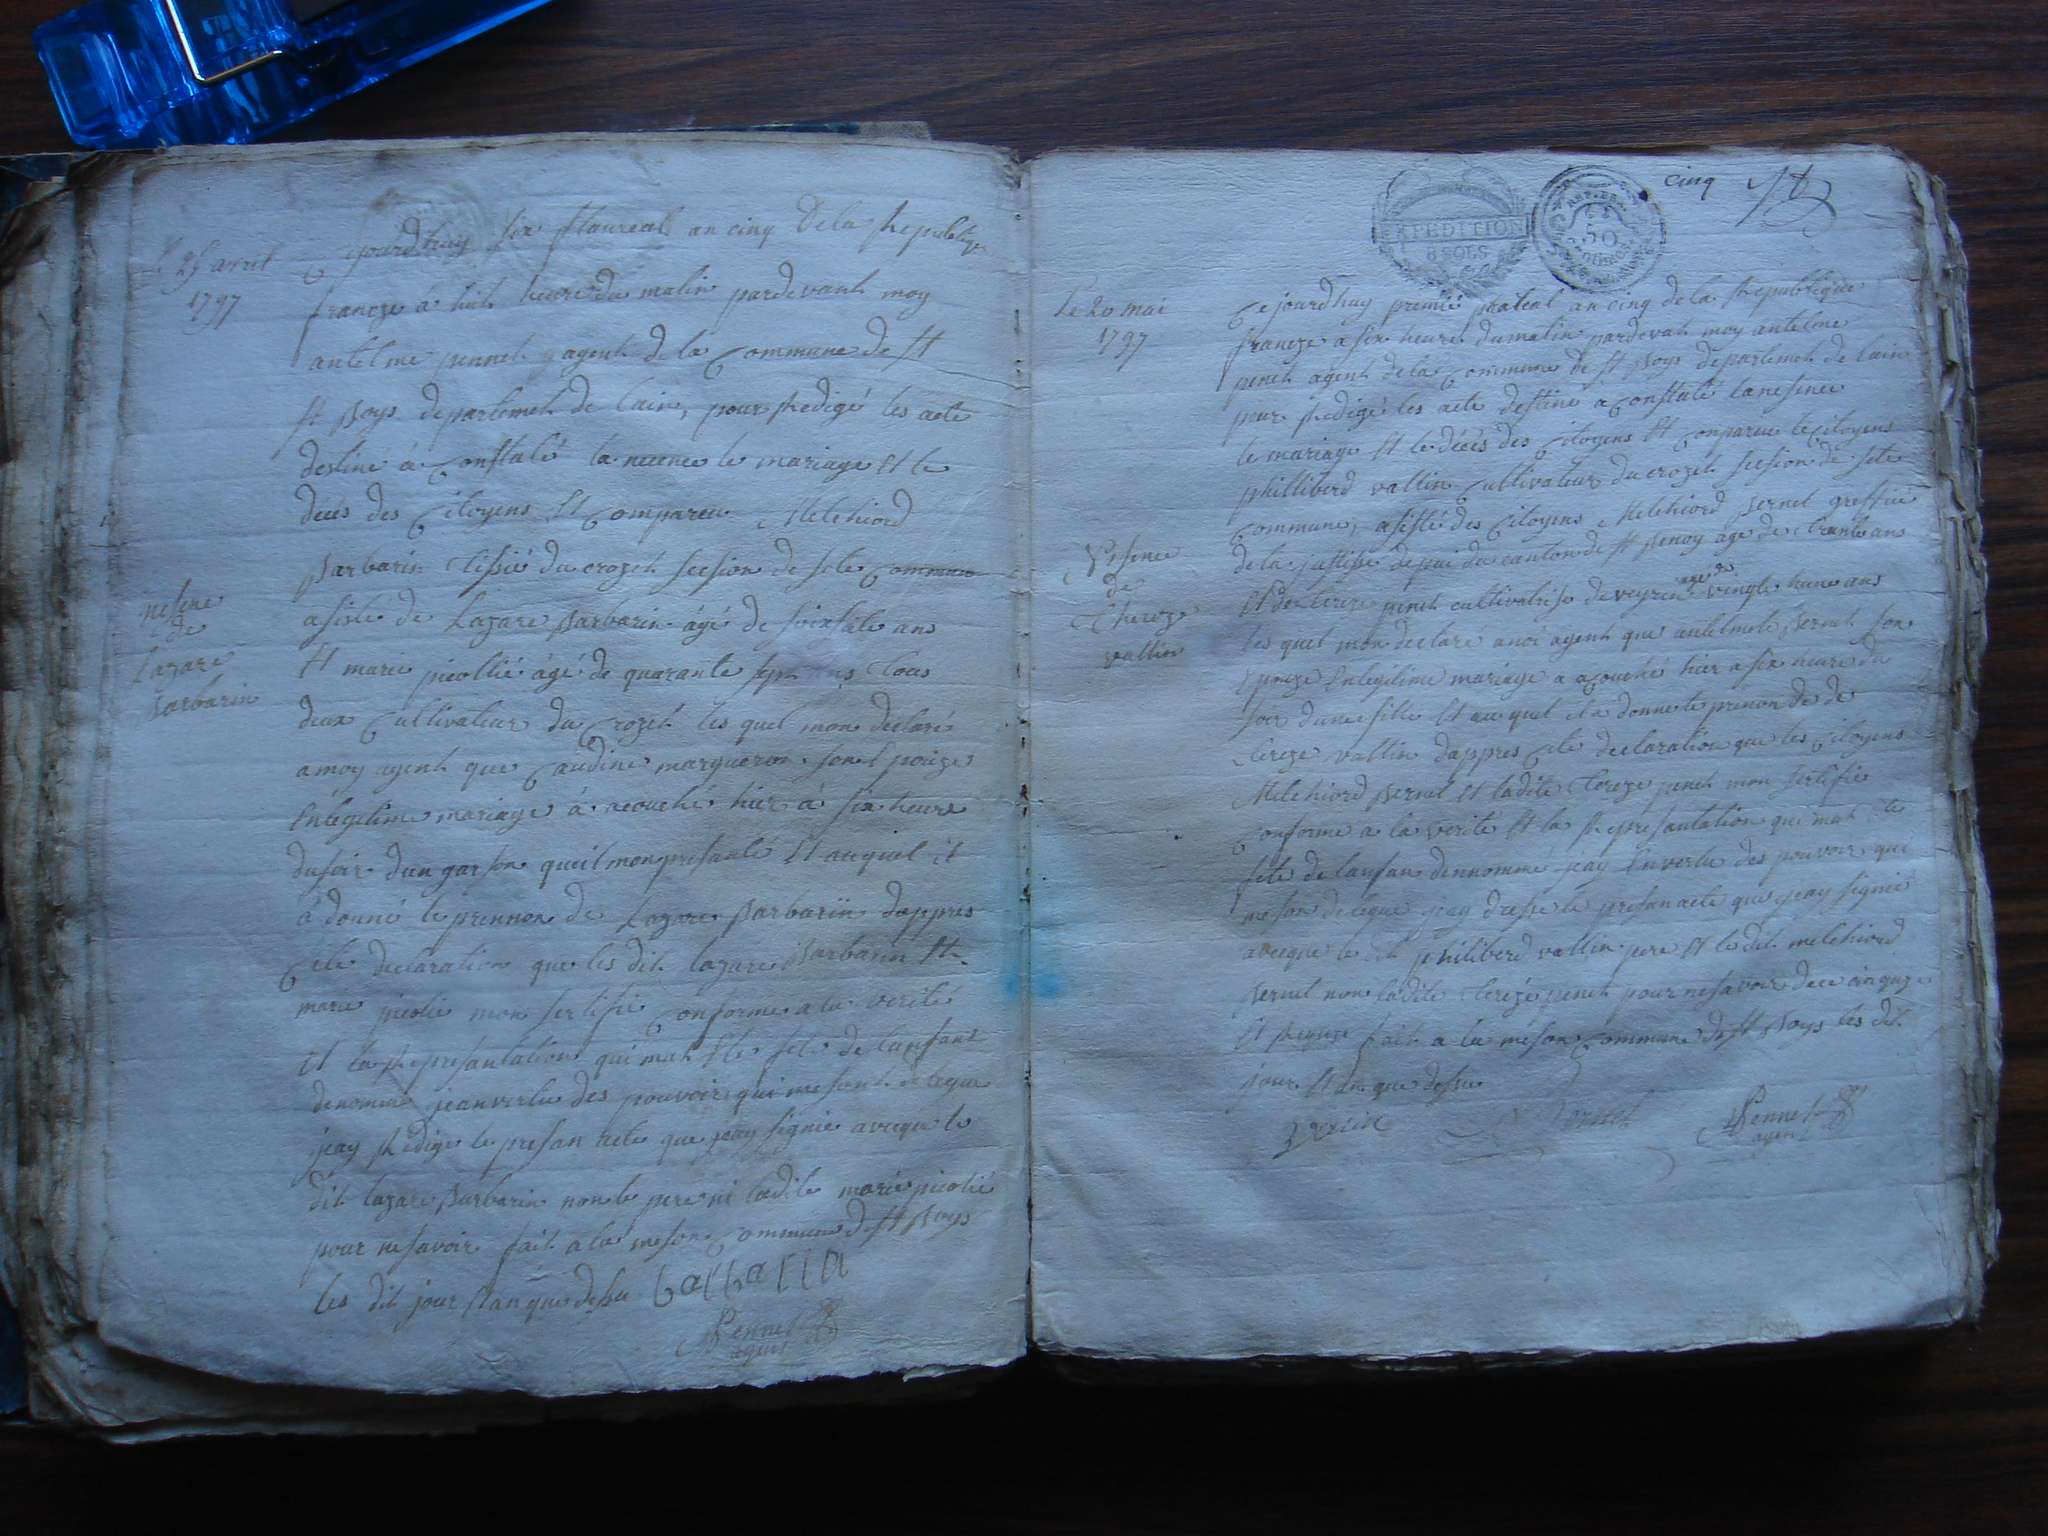 Le 25 avril
1797
Cejourdhuy six flaureal an cinq De la Republique
francoze a huit heure du matin pardevant moy
antelme pennet agent de la Commune de St
St Boys departemet de lain, pour Redigé les acte
destiné a Constaté la necence le mariage Et le
décés des Citoyens Et Compareu Melchiord
Barbarin tissié du crozet section de sete Commune
nesence
de
Lazare
Barbarin
asisté de Lazare Barbarin âgé de soixsate ans
Et marie picollié âgé de quarante sept ans tous
deux Cultivateur du Crozet les quel mon declaré
a moy agent que Caudine margueron son Epouze
En legitime mariage á acouché hier á six heure
du soir dun garson queil mon presanté Et auquel il
á donné le prennon de Lazare Barbarin dappres
Cete declaration que les dit lazare Barbarin Et
marie picolié mon sertifié Conforme a la verité
Et la Representation qui mat Eté fete de lanfant
denommé jeanvertu des pouvoir qui me sont delegué
jeay Rédigé le presan acte que jeay signié aveque le
dit lazare Barbarin non le pere ni ladite marie picolié
pour nesavoir fait a la meson Commune de St Boys
les dit jour Et an que dessu barbarin
Pennet
agent
EXPEDITION
8 SOLS
REP. FRA.
50
centimes
cinq
Le 20 mai
1797
Cejourdhuy premié prateal an cinq de la Republique
francoze a six heure du matin pardevat moy antelme
penet agent de la Commune de St Boys departemet de lain
pour Redigé les acte destiné a Constaté lanesence
le mariage Et le décés des Citoyens Et Conpareu le Citoyens
philliberd vallin Cultivateur du crozet section de sete
Commune, asisté des Citoyens Melchiord Bernet greffié
Nesence
de
Thereze
vallin
de la justisse de pai du canton de St Benoy age de trante ans
Et de tereze penet cultivatrise de veyrin age de vingte hune ans
les quel mon declaré a noi agent que antelmete Bernet son
Epouze En legitime mariage a acouché hier a six heure du
soir dunne fille Et au quel il a donné le prenon de de
tereze vallin dappres Cete declaration que les Citoyens
Melchiord Bernet Et ladite tereze penet mon sertifié
Conforme a la verité Et la Representation qui mat Eté
fete de lanfan dennommé jeay Envertu des pouvoir qui
me son delegué jeay dressé le presan acte que jeay signié
aveque le dit philiberd vallin pere Et le dit melchiord
Bernet non ladite tereze penet pour nesavoir dece anquze
Et Requze fait a la meson Commune de St Boys les dit
jour Et an que dessu
Bernet
Pennet
agent